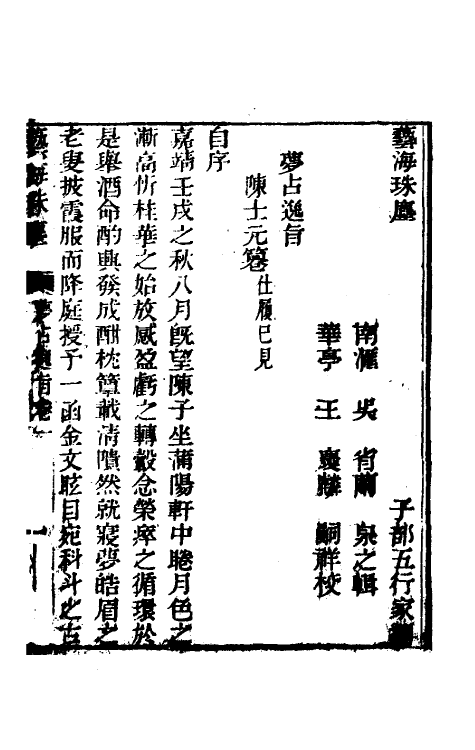 藝海珠塵
子部五行家類
南滙 吳 省蘭 泉之輯
華亭 王 嗣祥校
夢占逸旨
陳士元篹 仕履已見
自序
嘉靖壬戌之秋八月旣望陳子坐蒲陽軒中睠月色之
漸高忻桂華之始放感盈虧之轉轂念榮瘁之循環於
是舉酒命酌興發成酣枕簟載清隤然就寢夢皓眉之
老叟披霞服而降庭授予一函金文眩目宛科斗之古
藝海珠塵
夢占逸旨卷一
一